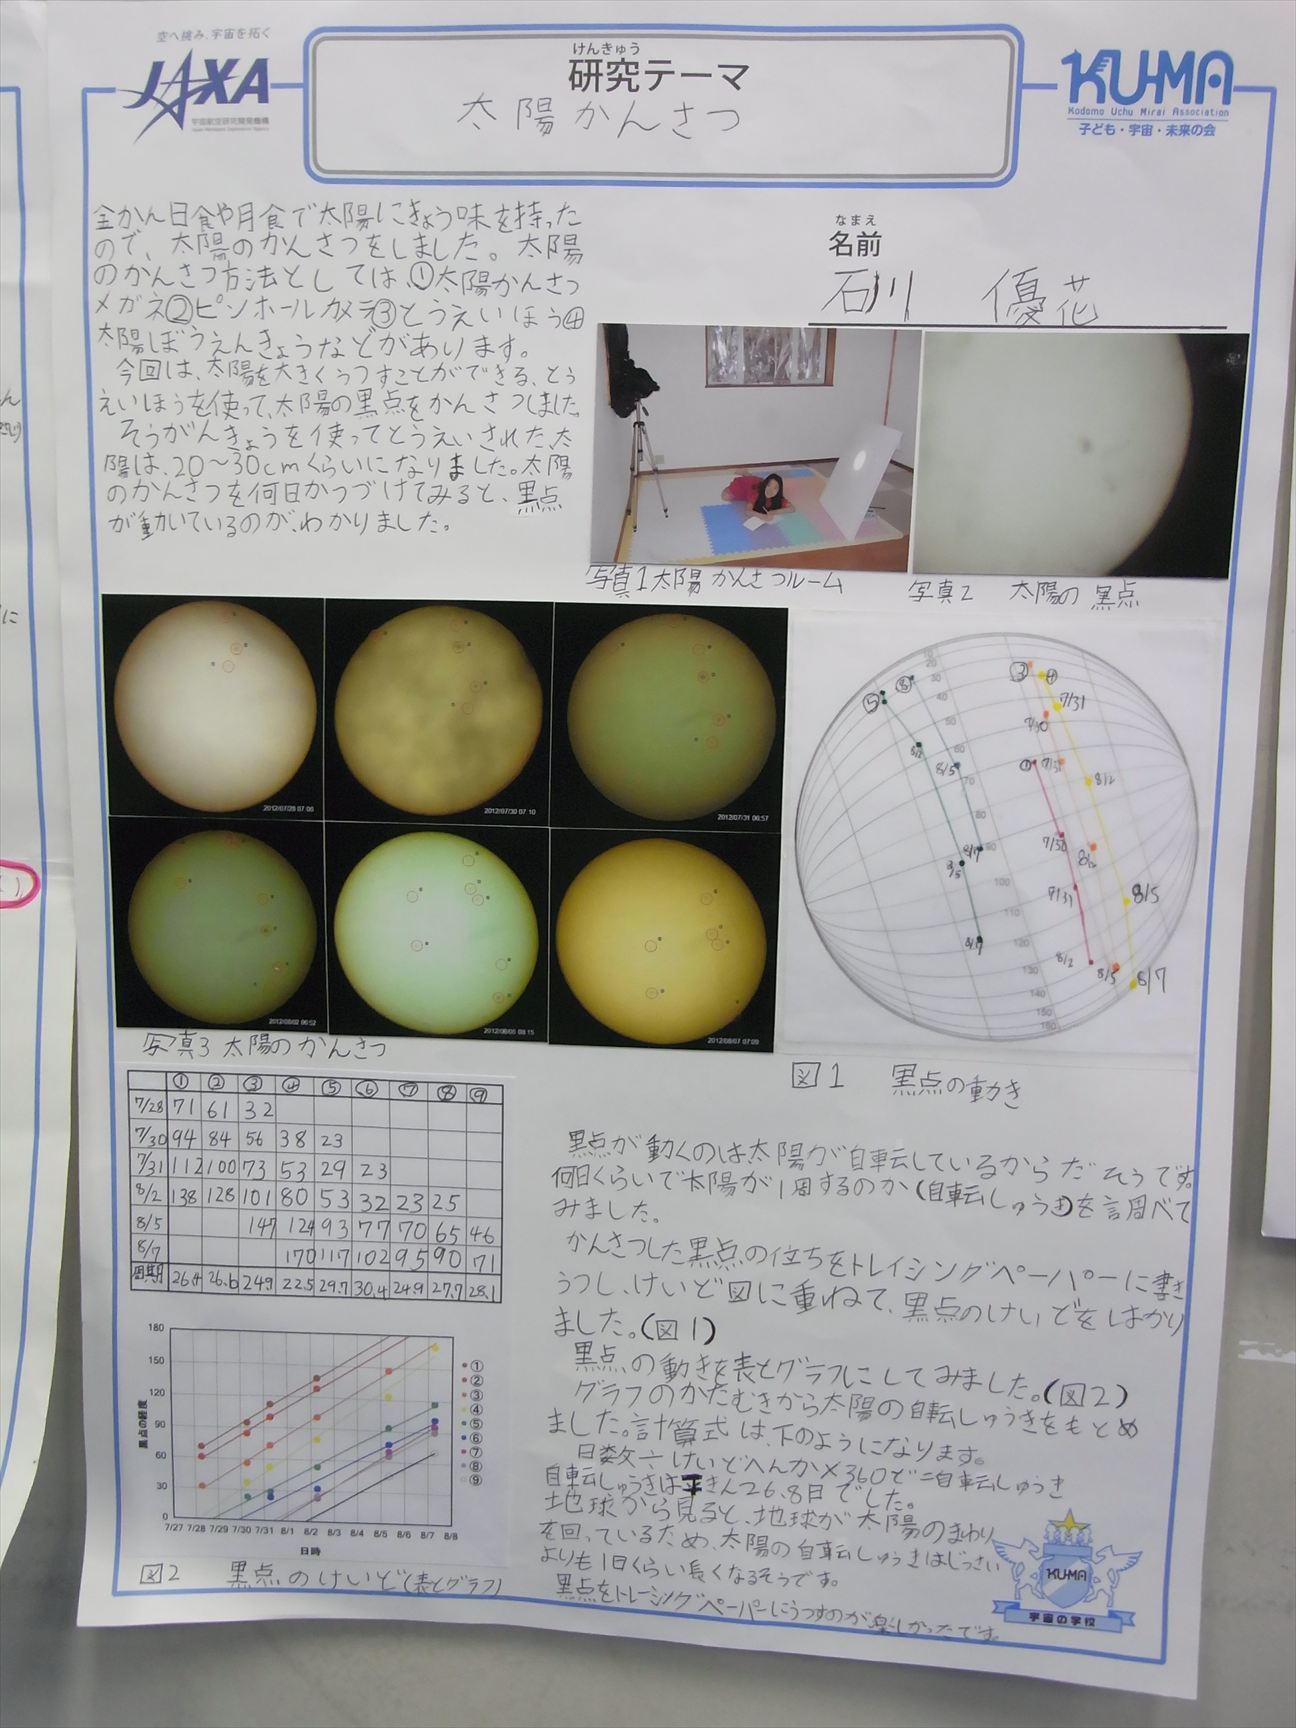 空へ挑み、宇宙を拓く
JAXA
宇宙航空研究開発機構
Japan Aerospace Exploration Agency
けんきゅう
研究テーマ
太陽かんさつ
KUMA
Kodomo Uchu Mirai Association
子ども・宇宙・未来の会
金かん日食や月食で太陽にきょう味を持った
ので、太陽のかんさつをしました。太陽
のかんさつ方法としては、①太陽かんさつ
メガネ②ピンホールカメラ③とうえいほう④
太陽ぼうえんきょうなどがあります。
今回は、太陽を大きくうつすことができる、とう
えいほうを使って、太陽の黒点をかんさつしました。
そうがんきょうを使ってとうえいされた、太
陽は、20〜30cmくらいになりました。太陽
のかんさつを何日かつづけてみると、黒点
が動いているのが、わかりました。
なまえ
名前
石川 優花
写真1太陽かんさつルーム
写真2 太陽の黒点
2012/07/28 07:06
2012/07/30 07:10
2012/07/31 06:57
2012/08/02 06:52
2012/08/05 08:15
2012/08/07 07:09
写真3 太陽のかんさつ
10
20
30
40
50
60
70
80
90
100
110
120
130
140
150
160
⑤ ⑧ ③ ④
7/31
7/30
8/2 8/5 ① 7/31 8/2
7/30 8/2
8/5 8/7
7/31 8/5
8/7 8/2 8/5 8/7
図1 黒点の動き
① ② ③ ④ ⑤ ⑥ ⑦ ⑧ ⑨
7/28 71 61 32
7/30 94 84 56 38 23
7/31 112 100 73 53 29 23
8/2 138 128 101 80 53 32 23 25
8/5 147 124 93 77 70 65 46
8/7 170 117 102 95 90 71
周期 26.4 26.6 24.9 22.5 29.7 30.4 24.9 27.7 28.1
黒点の経度
180
150
120
90
60
30
0
7/27 7/28 7/29 7/30 7/31 8/1 8/2 8/3 8/4 8/5 8/6 8/7 8/8
日時
①
②
③
④
⑤
⑥
⑦
⑧
⑨
図2 黒点のけいど(表とグラフ)
黒点が動くのは、太陽が自転しているからだそうです。
何日くらいで太陽が1周するのか(自転しゅうき)を調べて
みました。
かんさつした黒点の位ちをトレイシングペーパーに書き
うつし、けいど図に重ねて、黒点のけいどをはかり
ました。(図1)
黒点の動きを表とグラフにしてみました。(図2)
グラフのかたむきから太陽の自転しゅうきをもとめ
ました。計算式は、下のようになります。
日数÷けいどへんか×360ど=自転しゅうき
自転しゅうきは平きん26.8日でした。
地球から見ると、地球が太陽のまわり
を回っているため、太陽の自転しゅうきはじっさい
よりも1日くらい長くなるそうです。
黒点をトレーシングペーパーにうつすのが楽しかったです。
KU-MA
宇宙の学校